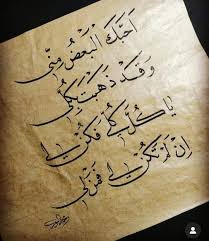 أحبك البعض مني
وقد ذهبت بكلي
يا كل كلي فكن لي
إن لم تكن لي فمن لي